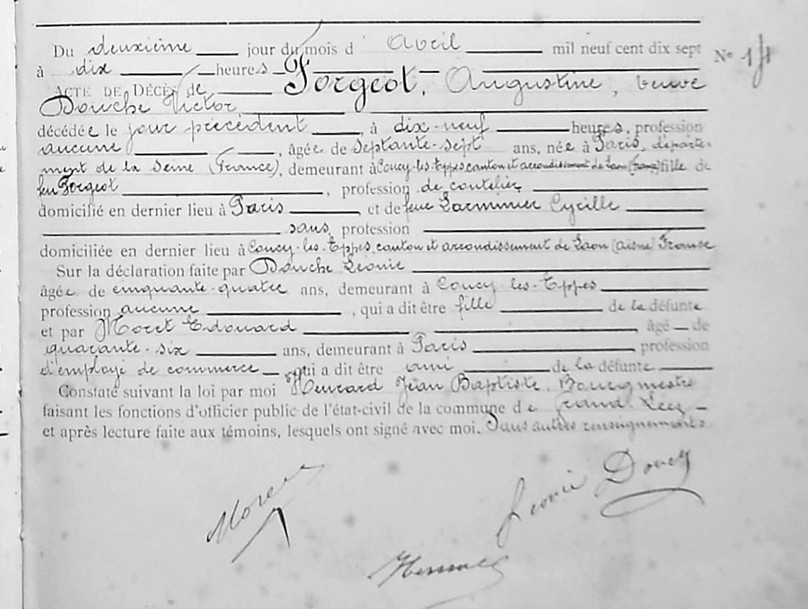 Du deuxième jour du mois d' Avril mil neuf cent dix sept N° 14
à dix heures
ACTE DE DÉCÈS de Forgeot, Augustine, veuve
Douche Victor,
décédée le jour précédent, à dix-neuf heures, profession
aucune, âgée de septante-sept ans, née à Paris, départe-
ment de la Seine (France), demeurant à Coucy-les-Eppes canton et arrondissement de Laon fille de
feu Forgeot, profession de coutelier
domicilié en dernier lieu à Paris et de feue Larminier Cyrille
sans profession
domiciliée en dernier lieu à Coucy-les-Eppes, canton et arrondissement de Laon (aisne) France
Sur la déclaration faite par Douche Léonie
âgée de cinquante-quatre ans, demeurant à Coucy les-Eppes
profession aucune, qui a dit être fille de la défunte
et par Moret Edouard, âgé de
quarante-six ans, demeurant à Paris profession
d'employé de commerce qui a dit être ami de la défunte
Constaté suivant la loi par moi Jean Baptiste, Bourgmestre
faisant les fonctions d'officier public de l'état-civil de la commune de Grand-Leez
et après lecture faite aux témoins, lesquels ont signé avec moi. Sans autres renseignements
Leonie